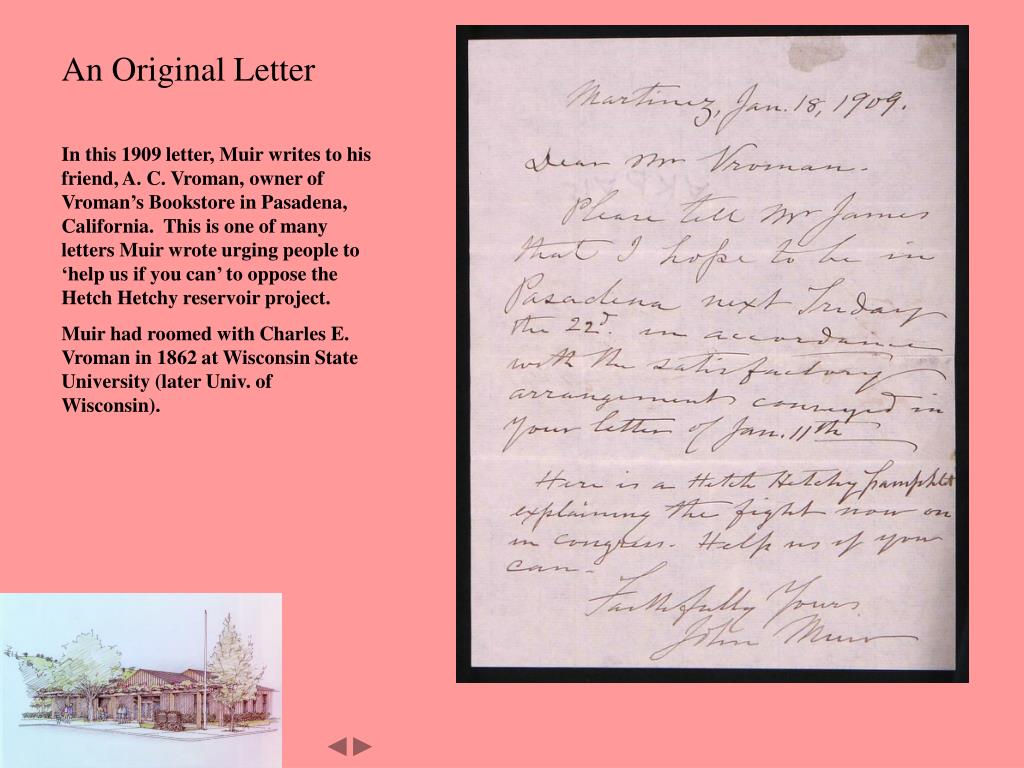 An Original Letter
In this 1909 letter, Muir writes to his
friend, A. C. Vroman, owner of
Vroman’s Bookstore in Pasadena,
California.  This is one of many
letters Muir wrote urging people to
‘help us if you can’ to oppose the
Hetch Hetchy reservoir project.
Muir had roomed with Charles E.
Vroman in 1862 at Wisconsin State
University (later Univ. of
Wisconsin).
Martinez, Jan. 18, 1909.
Dear Mr Vroman.
Please tell Mr James
that I hope to be in
Pasadena next Friday
the 22d. in accordance
with the satisfactory
arrangement conveyed in
your letter of Jan. 11th
Here is a Hetch Hetchy pamphlet
explaining the fight now on
in Congress. Help us if you
can.
Faithfully Yours
John Muir